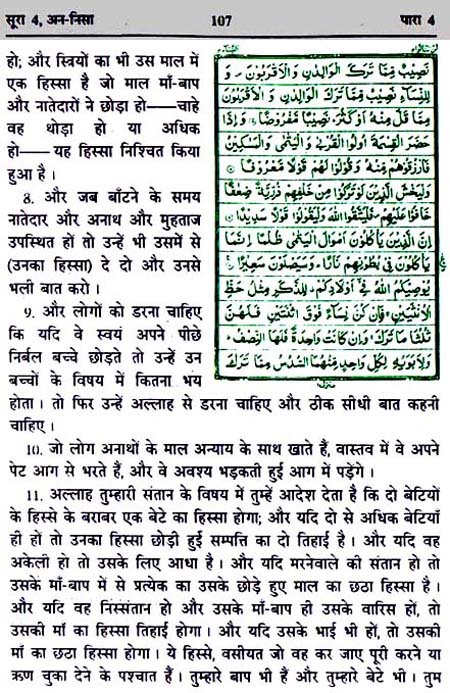 सूरा 4, अन-निसा 107 पारा 4
हो; और स्त्रियों का भी उस माल में
एक हिस्सा है जो माल माँ-बाप
और नातेदारों ने छोड़ा हो——चाहे
वह थोड़ा हो या अधिक
हो—— यह हिस्सा निश्चित किया
हुआ है ।
8. और जब बाँटने के समय
नातेदार और अनाथ और मुहताज
उपस्थित हों तो उन्हें भी उसमें से
(उनका हिस्सा) दे दो और उनसे
भली बात करो ।
9. और लोगों को डरना चाहिए
कि यदि वे स्वयं अपने पीछे
निर्बल बच्चे छोड़ते तो उन्हें उन
बच्चों के विषय में कितना भय
نَصِيْبٌ مِّمَّا تَرَكَ الْوَالِدٰنِ وَ الْاَقْرَبُوْنَ وَ
لِلنِّسَآءِ نَصِيْبٌ مِّمَّا تَرَكَ الْوَالِدٰنِ وَ الْاَقْرَبُوْنَ
مِمَّا قَلَّ مِنْهُ اَوْ كَثُرَ نَصِيْبًا مَّفْرُوْضًا وَ اِذَا
حَضَرَ الْقِسْمَةَ اُولُوا الْقُرْبٰى وَ الْيَتٰمٰى وَ الْمَسٰكِيْنُ
فَارْزُقُوْهُمْ مِّنْهُ وَ قُوْلُوْا لَهُمْ قَوْلًا مَّعْرُوْفًا
وَ لْيَخْشَ الَّذِيْنَ لَوْ تَرَكُوْا مِنْ خَلْفِهِمْ ذُرِّيَّةً ضِعٰفًا
خَافُوْا عَلَيْهِمْ فَلْيَتَّقُوا اللّٰهَ وَ لْيَقُوْلُوْا قَوْلًا سَدِيْدًا
اِنَّ الَّذِيْنَ يَاْكُلُوْنَ اَمْوَالَ الْيَتٰمٰى ظُلْمًا اِنَّمَا
يَاْكُلُوْنَ فِيْ بُطُوْنِهِمْ نَارًا وَ سَيَصْلَوْنَ سَعِيْرًا
يُوْصِيْكُمُ اللّٰهُ فِيْٓ اَوْلَادِكُمْ لِلذَّكَرِ مِثْلُ حَظِّ
الْاُنْثَيَيْنِ فَاِنْ كُنَّ نِسَآءً فَوْقَ اثْنَتَيْنِ فَلَهُنَّ
ثُلُثَا مَا تَرَكَ وَ اِنْ كَانَتْ وَاحِدَةً فَلَهَا النِّصْفُ
وَ لِاَبَوَيْهِ لِكُلِّ وَاحِدٍ مِّنْهُمَا السُّدُسُ مِمَّا تَرَكَ
होता । तो फिर उन्हें अल्लाह से डरना चाहिए और ठीक सीधी बात कहनी
चाहिए ।
10. जो लोग अनाथों के माल अन्याय के साथ खाते हैं, वास्तव में वे अपने
पेट आग से भरते हैं, और वे अवश्य भड़कती हुई आग में पड़ेंगे ।
11. अल्लाह तुम्हारी संतान के विषय में तुम्हें आदेश देता है कि दो बेटियों
के हिस्से के बराबर एक बेटे का हिस्सा होगा; और यदि दो से अधिक बेटियाँ
ही हों तो उनका हिस्सा छोड़ी हुई सम्पत्ति का दो तिहाई है । और यदि वह
अकेली हो तो उसके लिए आधा है । और यदि मरनेवाले की संतान हो तो
उसके माँ-बाप में से प्रत्येक का उसके छोड़े हुए माल का छठा हिस्सा है ।
और यदि वह निस्संतान हो और उसके माँ-बाप ही उसके वारिस हों, तो
उसकी माँ का हिस्सा तिहाई होगा । और यदि उसके भाई भी हों, तो उसकी
माँ का छठा हिस्सा होगा । ये हिस्से, वसीयत जो वह कर जाए पूरी करने या
ऋण चुका देने के पश्चात हैं । तुम्हारे बाप भी हैं और तुम्हारे बेटे भी । तुम